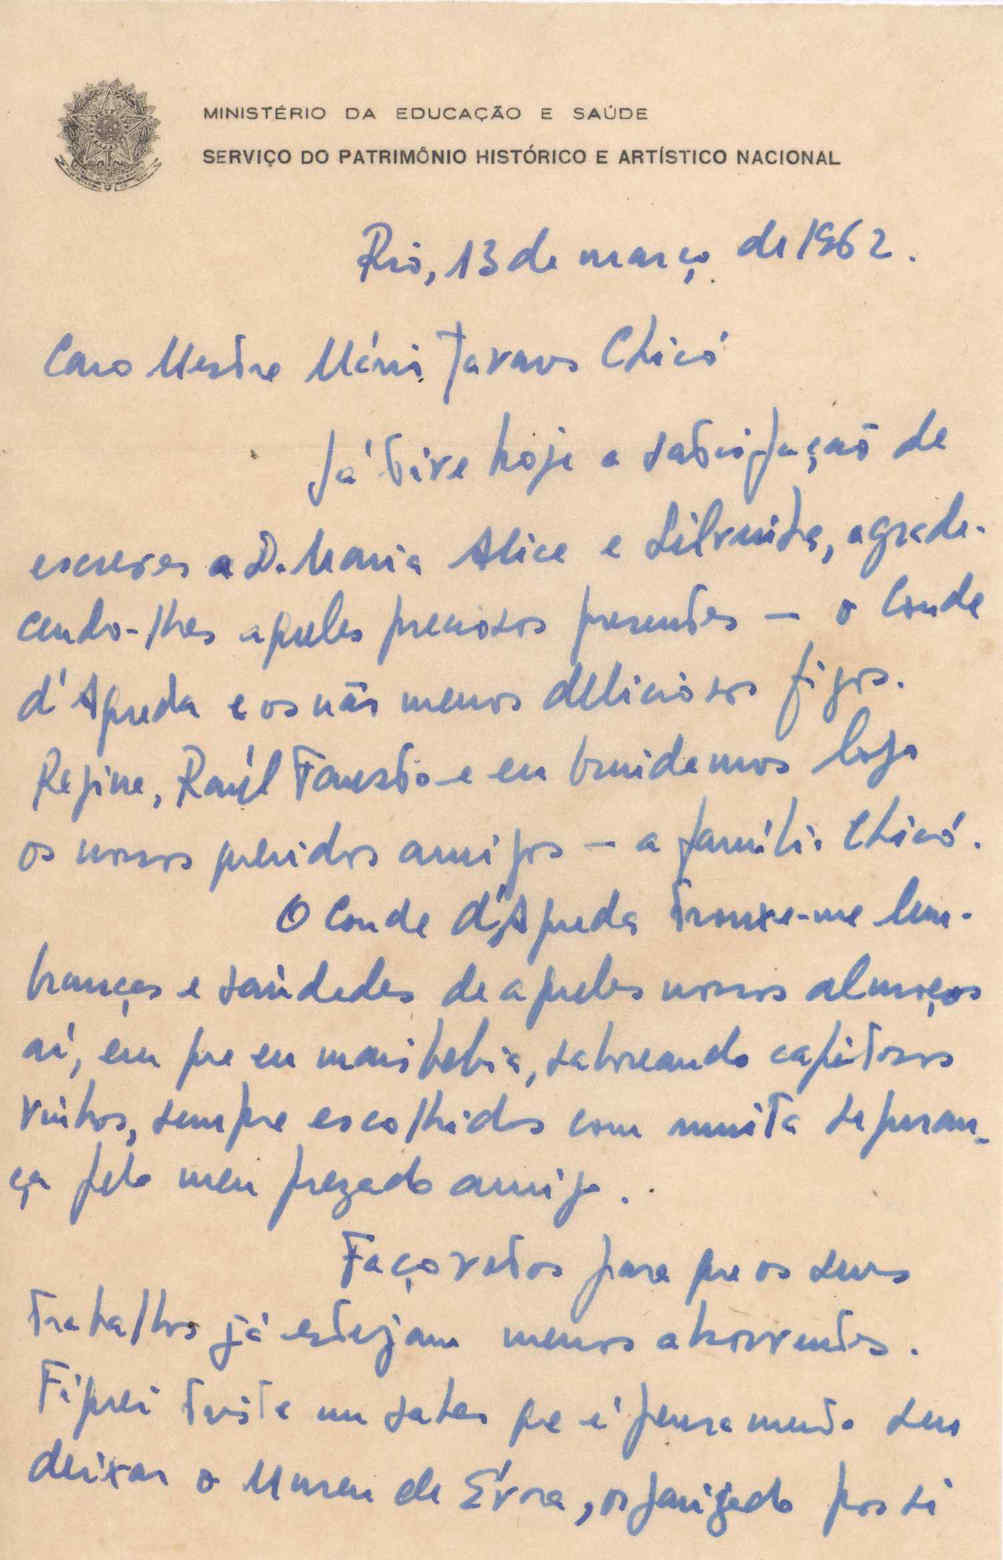 MINISTÉRIO DA EDUCAÇÃO E SAÚDE
SERVIÇO DO PATRIMÔNIO HISTÓRICO E ARTÍSTICO NACIONAL
Rio, 13 de março de 1962.
Caro Mestre Mário Tavares Chicó
Já tive hoje a satisfação de
escrever a D. Maria Alice e Silvinha, agrade-
cendo-lhes aqueles preciosos presentes — o Conde
d'Agueda e os não menos deliciosos figos.
Regine, Raúl Fausto e eu brindamos logo
os nossos queridos amigos — a família Chicó.
O Conde d'Agueda trouxe-me lem-
branças e saúdades de aqueles nossos almoços
aí, em que eu mais bebia, saboreando capitosos
vinhos, sempre escolhidos com muita seguran-
ça pelo meu prezado amigo.
Faço votos para que os seus
trabalhos já estejam menos absorventes.
Fiquei triste em saber que é pensamento seu
deixar o Museu de Évora, organizado por si